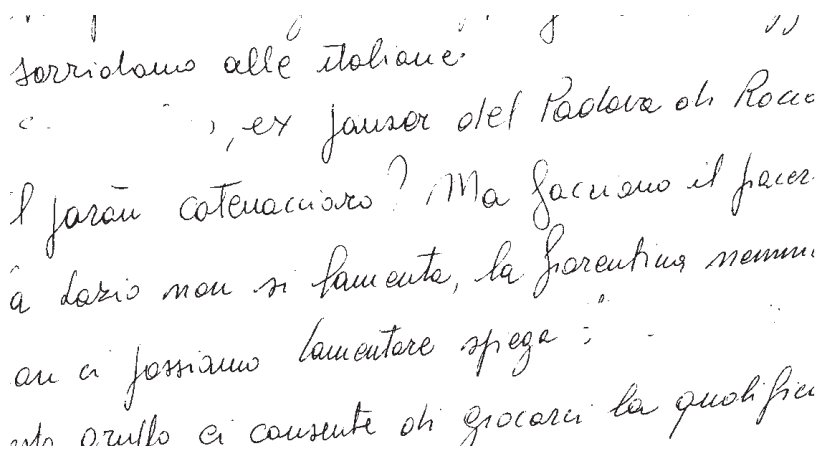 sorridano alle italiane.
, ex panzer del Padova di Rocco
l paròn catenacciaro? Ma facciano il piacer
a Lazio non si lamenta, la Fiorentina nemm
on ci possiamo lamentare spiega :
sto gruppo ci consente di giocarci la qualific